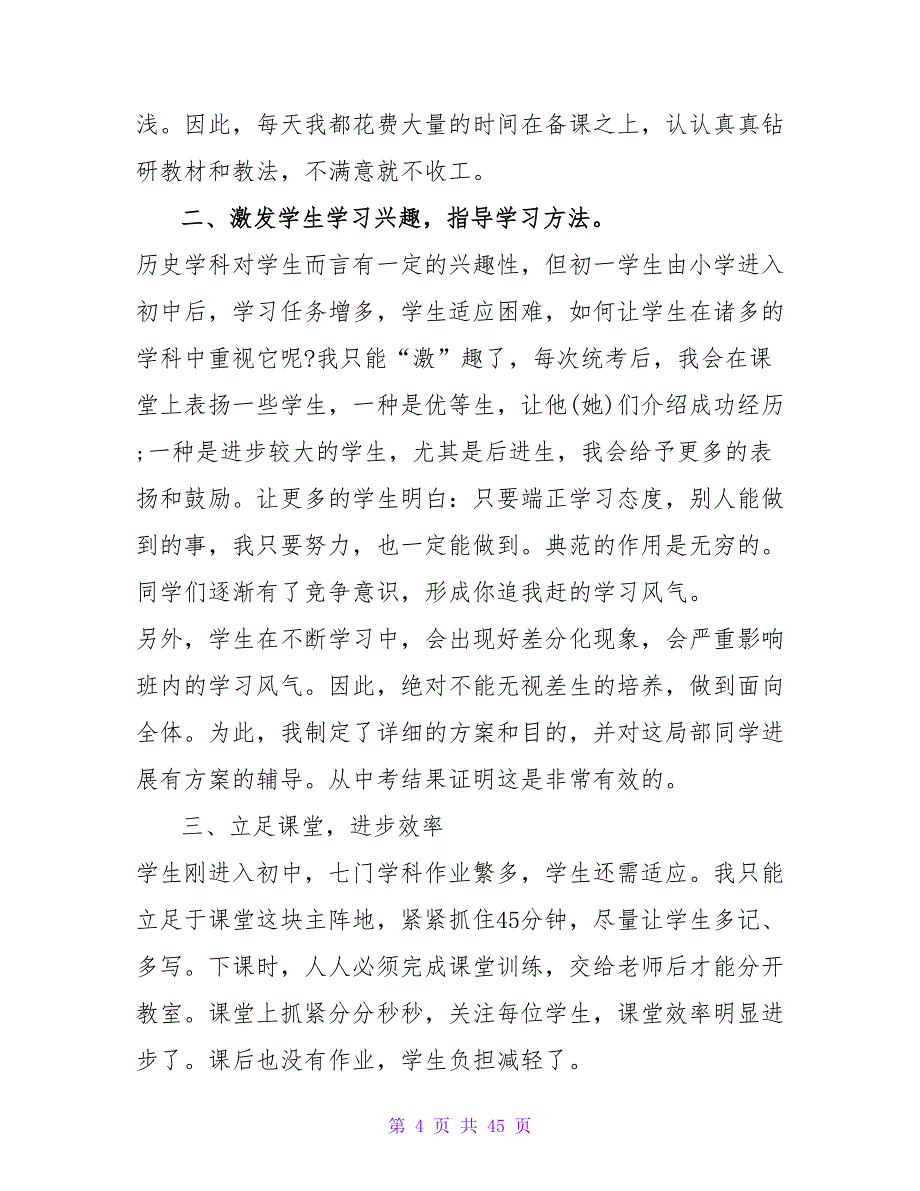 浅。因此，每天我都花费大量的时间在备课之上，认认真真钻
研教材和教法，不满意就不收工。
二、激发学生学习兴趣，指导学习方法。
历史学科对学生而言有一定的兴趣性，但初一学生由小学进入
初中后，学习任务增多，学生适应困难，如何让学生在诸多的
学科中重视它呢?我只能“激”趣了，每次统考后，我会在课
堂上表扬一些学生，一种是优等生，让他(她)们介绍成功经历
;一种是进步较大的学生，尤其是后进生，我会给予更多的表
扬和鼓励。让更多的学生明白：只要端正学习态度，别人能做
到的事，我只要努力，也一定能做到。典范的作用是无穷的。
同学们逐渐有了竞争意识，形成你追我赶的学习风气。
另外，学生在不断学习中，会出现好差分化现象，会严重影响
班内的学习风气。因此，绝对不能无视差生的培养，做到面向
全体。为此，我制定了详细的方案和目的，并对这局部同学进
展有方案的辅导。从中考结果证明这是非常有效的。
三、立足课堂，进步效率
学生刚进入初中，七门学科作业繁多，学生还需适应。我只能
立足于课堂这块主阵地，紧紧抓住45分钟，尽量让学生多记、
多写。下课时，人人必须完成课堂训练，交给老师后才能分开
教室。课堂上抓紧分分秒秒，关注每位学生，课堂效率明显进
步了。课后也没有作业，学生负担减轻了。
第 4 页 共 45 页